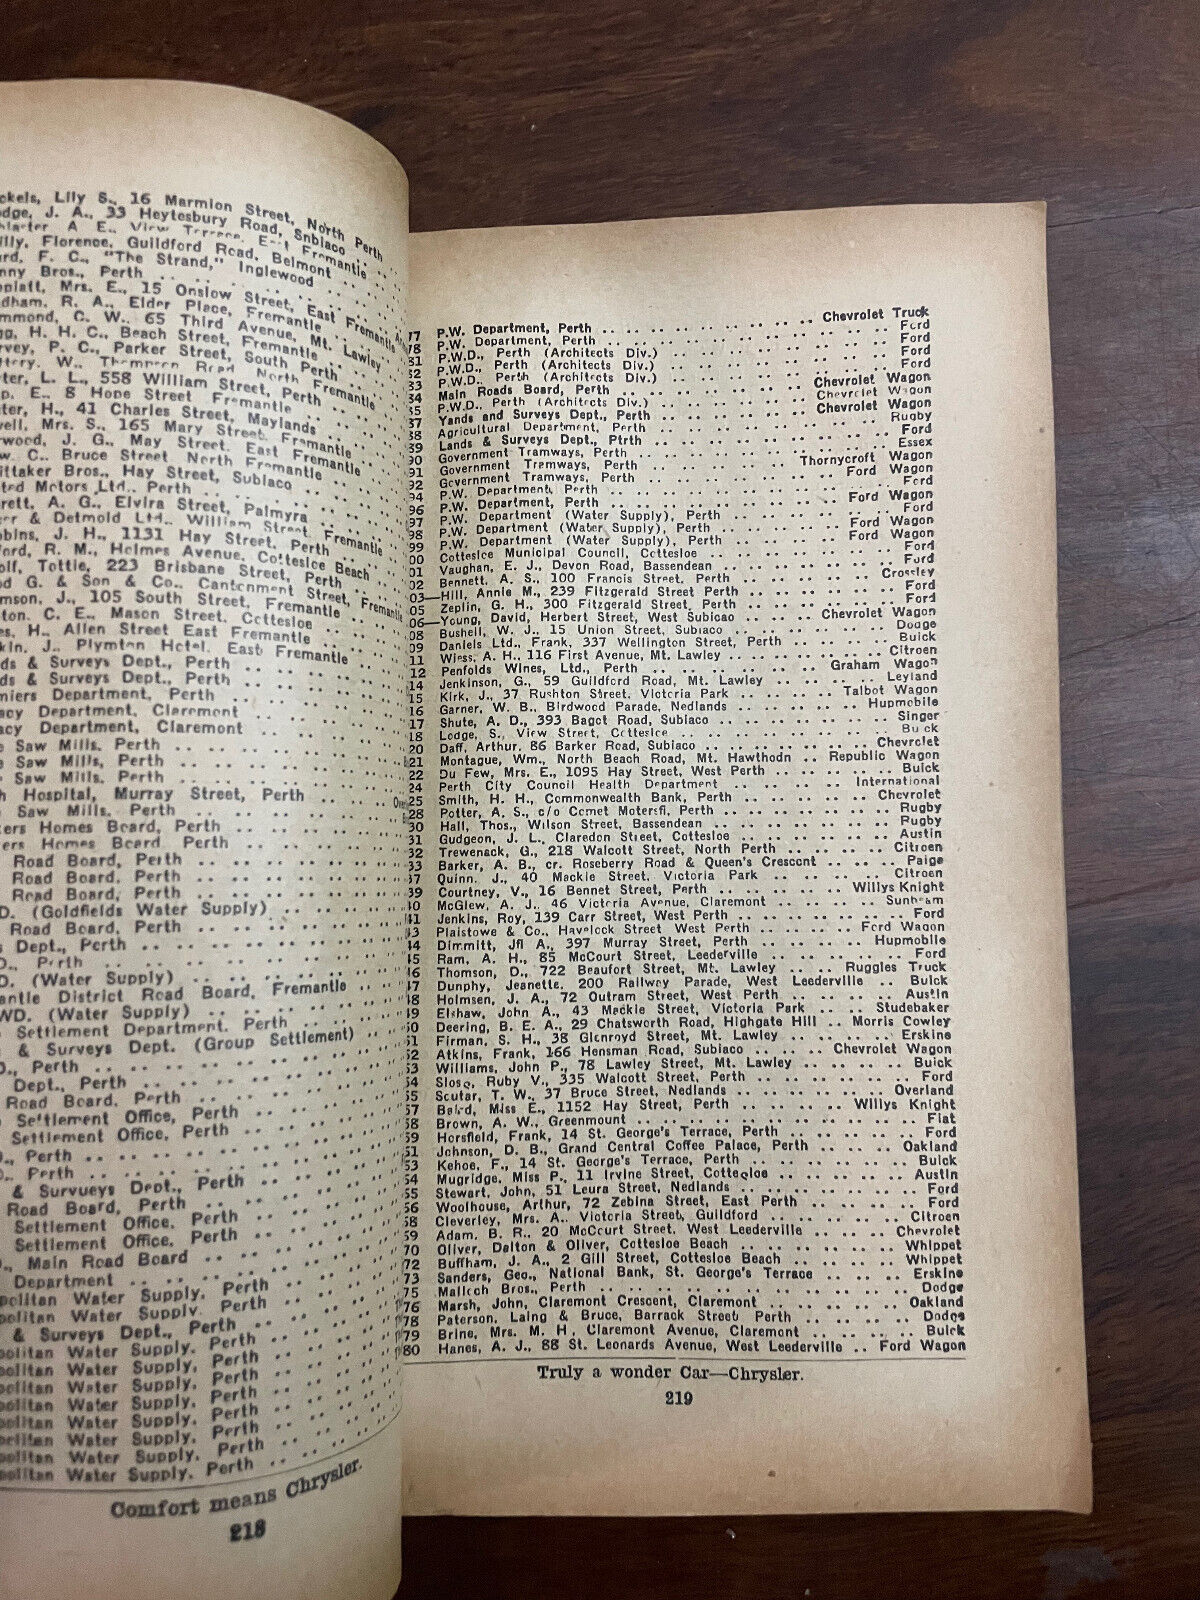 ckels, Lily S., 16 Marmion Street, North Perth
odge, J. A., 33 Heytesbury Road, Snbiaco
A E., View Terrace, East Fremantle
illy, Florence, Guildford Road, Belmont
ard, F. C., "The Strand," Inglewood
nny Bros., Perth
pplatt, Mrs. E., 15 Onslow Street, East Fremantle
dham, R. A., Elder Place, Fremantle
mmond, C. W., 65 Third Avenue, Mt. Lawley
H. H. C., Beach Street, Fremantle
rvey, P. C., Parker Street, South Perth
W., Thompson Road North Fremantle
ter, L. L., 558 William Street, Perth
p. E., 8 Hope Street Fremantle
ter, H., 41 Charles Street, Maylands
well, Mrs. S., 165 Mary Street, Fremantle
rwood, J. G., May Street, East Fremantle
w, C., Bruce Street North Fremantle
ittaker Bros., Hay Street, Subiaco
ted Motors Ltd., Perth
rett, A. G., Elvira Street, Palmyra
er & Detmold Ltd., William Street, Fremantle
bbins, J. H., 1131 Hay Street, Perth
ford, R. M., Holmes Avenue, Cottesloe Beach
olf, Tottie, 223 Brisbane Street, Perth
od G. & Son & Co., Cantonment Street, Fremantle
mson, J., 105 South Street, Fremantle
ton, C. E., Mason Street, Cottesloe
es, H., Allen Street East Fremantle
kin, J., Plymton Hotel, East Fremantle
ds & Surveys Dept., Perth
ds & Surveys Dept., Perth
miers Department, Perth
acy Department, Claremont
acy Department, Claremont
e Saw Mills, Perth
e Saw Mills, Perth
Saw Mills, Perth
h Hospital, Murray Street, Perth
Saw Mills, Perth
kers Homes Board, Perth
ers Homes Board, Perth
Road Board, Perth
Road Board, Perth
Road Board, Perth
D. (Goldfields Water Supply)
Road Board, Perth
s Dept., Perth
D., Perth
D. (Water Supply)
antle District Road Board, Fremantle
WD. (Water Supply)
Settlement Department, Perth
& Surveys Dept. (Group Settlement)
D., Perth
Dept., Perth
Road Board, Perth
Settlement Office, Perth
Settlement Office, Perth
D., Perth
Perth
& Survueys Dept., Perth
Road Board, Perth
Settlement Office, Perth
Settlement Office, Perth
D., Main Road Board
Department
politan Water Supply, Perth
politan Water Supply, Perth
& Surveys Dept., Perth
politan Water Supply, Perth
politan Water Supply, Perth
politan Water Supply, Perth
politan Water Supply, Perth
politan Water Supply, Perth
politan Water Supply, Perth
politan Water Supply, Perth
politan Water Supply, Perth
Comfort means Chrysler.
218
77 P.W. Department, Perth .. Chevrolet Truck
78 P.W. Department, Perth .. Ford
81 P.W.D., Perth (Architects Div.) .. Ford
82 P.W.D., Perth (Architects Div.) .. Ford
83 P.W.D., Perth (Architects Div.) .. Ford
84 Main Roads Board, Perth .. Chevrolet Wagon
85 P.W.D., Perth (Architects Div.) .. Chevrolet Wagon
87 Yands and Surveys Dept., Perth .. Chevrolet Wagon
88 Agricultural Department, Perth .. Rugby
89 Lands & Surveys Dept., Ptrth .. Ford
90 Government Tramways, Perth .. Essex
91 Government Tremways, Perth .. Thornycroft Wagon
92 Government Tramways, Perth .. Ford Wagon
94 P.W. Department, Perth .. Ford
96 P.W. Department, Perth .. Ford Wagon
97 P.W. Department (Water Supply), Perth .. Ford
98 P.W. Department (Water Supply), Perth .. Ford Wagon
99 P.W. Department (Water Supply), Perth .. Ford Wagon
00 Cottesloe Municipal Council, Cottesloe .. Ford
01 Vaughan, E. J., Devon Road, Bassendean .. Ford
02 Bennett, A. S., 100 Francis Street, Perth .. Crossley
03—Hill, Annie M., 239 Fitzgerald Street Perth .. Ford
05 Zeplin, G. H., 300 Fitzgerald Street, Perth .. Ford
06—Young, David, Herbert Street, West Subicao .. Chevrolet Wagon
08 Bushell, W. J., 15 Union Street, Subiaco .. Dodge
09 Daniels Ltd., Frank, 337 Wellington Street, Perth .. Buick
11 Wiess, A. H., 116 First Avenue, Mt. Lawley .. Citroen
12 Penfolds Wines, Ltd., Perth .. Graham Wagon
14 Jenkinson, G., 59 Guildford Road, Mt. Lawley .. Leyland
15 Kirk, J., 37 Rushton Street, Victoria Park .. Talbot Wagon
16 Garner, W. B., Birdwood Parade, Nedlands .. Hupmobile
17 Shute, A. D., 393 Bagot Road, Subiaco .. Singer
18 Lodge, S., View Street, Cottesloe .. Buick
20 Daff, Arthur, 86 Barker Road, Subiaco .. Chevrolet
21 Montague, Wm., North Beach Road, Mt. Hawthodn .. Republic Wagon
22 Du Few, Mrs. E., 1095 Hay Street, West Perth .. Buick
24 Perth City Council Health Department .. International
25 Smith, H. H., Commonwealth Bank, Perth .. Chevrolet
28 Potter, A. S., c/o Comet Motersfi, Perth .. Rugby
30 Hall, Thos., Wilson Street, Bassendean .. Rugby
31 Gudgeon, J. L., Claredon Street, Cottesloe .. Austin
32 Trewenack, G., 218 Walcott Street, North Perth .. Citroen
33 Barker, A. B., cr. Roseberry Road & Queen's Crescent .. Paige
37 Quinn, J., 40 Mackie Street, Victoria Park .. Citroen
39 Courtney, V., 16 Bennet Street, Perth .. Willys Knight
40 McGlew, A. J., 46 Victoria Avenue, Claremont .. Sunbeam
41 Jenkins, Roy, 139 Carr Street, West Perth .. Ford
43 Plaistowe & Co., Havelock Street West Perth .. Ford Wagon
44 Dimmitt, Jfl A., 397 Murray Street, Perth .. Hupmobile
45 Ram, A. H., 85 McCourt Street, Leederville .. Ford
46 Thomson, D., 722 Beaufort Street, Mt. Lawley .. Ruggles Truck
47 Dunphy, Jeanette, 200 Railway Parade, West Leederville .. Buick
48 Holmsen, J. A., 72 Outram Street, West Perth .. Austin
49 Elshaw, John A., 43 Mackie Street, Victoria Park .. Studebaker
50 Deering, B. E. A., 29 Chatsworth Road, Highgate Hill .. Morris Cowley
51 Firman, S. H., 38 Glenroyd Street, Mt. Lawley .. Erskine
52 Atkins, Frank, 166 Hensman Road, Subiaco .. Chevrolet Wagon
53 Williams, John P., 78 Lawley Street, Mt. Lawley .. Buick
54 Sloso, Ruby V., 335 Walcott Street, Perth .. Ford
55 Scutar, T. W., 37 Bruce Street, Nedlands .. Overland
57 Baird, Miss E., 1152 Hay Street, Perth .. Willys Knight
58 Brown, A. W., Greenmount .. Fiat
59 Horsfield, Frank, 14 St. George's Terrace, Perth .. Ford
51 Johnson, D. B., Grand Central Coffee Palace, Perth .. Oakland
53 Kehoe, F., 14 St. George's Terrace, Perth .. Buick
54 Mugridge, Miss P., 11 Irvine Street, Cottesloe .. Austin
55 Stewart, John, 51 Leura Street, Nedlands .. Ford
56 Woolhouse, Arthur, 72 Zebina Street, East Perth .. Ford
58 Cleverley, Mrs. A., Victoria Street, Guildford .. Citroen
59 Adam, B. R., 20 McCourt Street, West Leederville .. Chevrolet
70 Oliver, Dalton & Oliver, Cottesloe Beach .. Whippet
72 Buffham, J. A., 2 Gill Street, Cottesloe Beach .. Whippet
73 Sanders, Geo., National Bank, St. George's Terrace .. Erskine
75 Malloch Bros., Perth .. Dodge
76 Marsh, John, Claremont Crescent, Claremont .. Oakland
78 Paterson, Laing & Bruce, Barrack Street Perth .. Dodge
79 Brine, Mrs. M. H, Claremont Avenue, Claremont .. Buick
80 Hanes, A. J., 88 St. Leonards Avenue, West Leederville .. Ford Wagon
Truly a wonder Car—Chrysler.
219